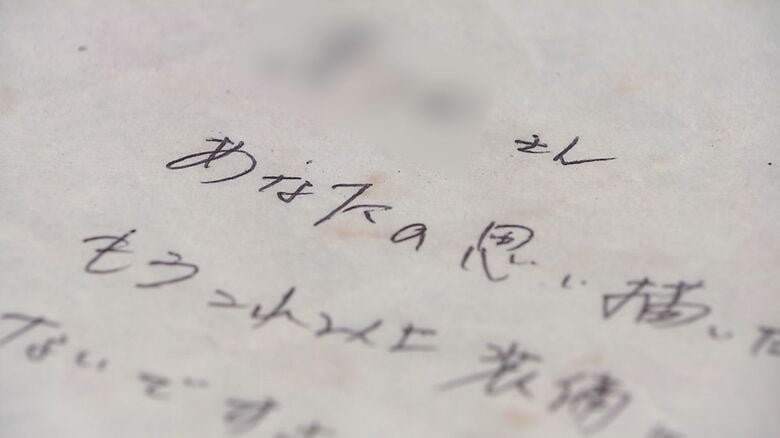 さん
あなたの思い描いた
もうこれ以上装備
ないです